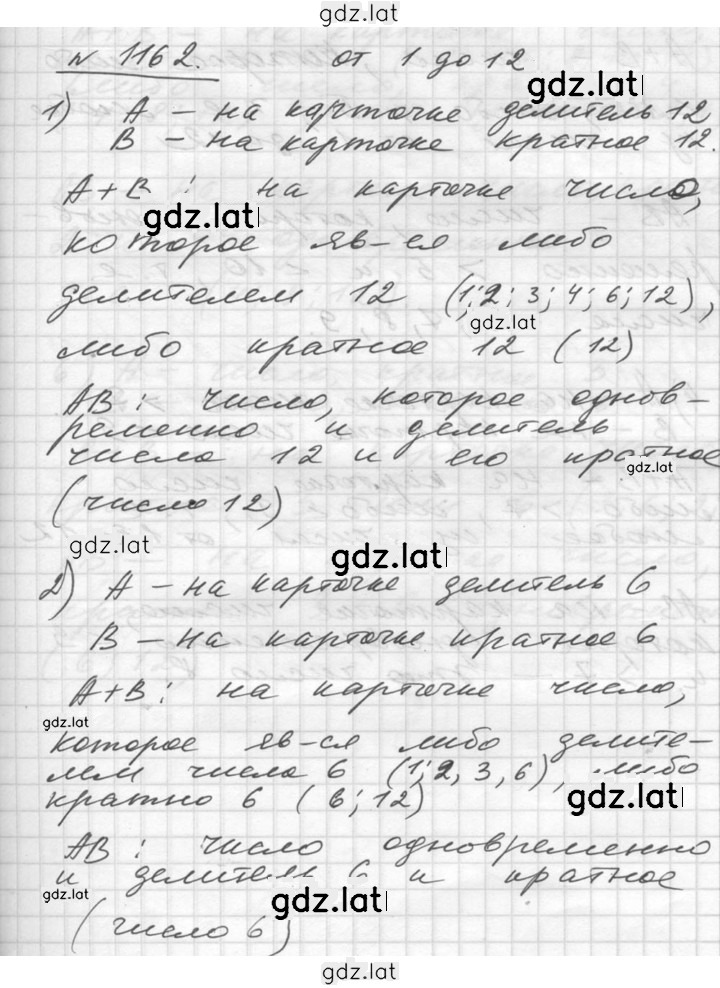 gdz.lat
N 1162. от 1 до 12
gdz.lat
1) А – на карточке делитель 12
В – на карточке кратное 12.
А+В : на карточке число,
gdz.lat
которое яв-ся либо
делителем 12 (1; 2; 3; 4; 6; 12),
gdz.lat
либо кратное 12 (12)
АВ : число, которое однов-
ременно и делитель
числа 12 и его кратное
gdz.lat
(число 12)
gdz.lat
gdz.lat
2) А – на карточке делитель 6
В – на карточке кратное 6
А+В : на карточке число,
gdz.lat
которое яв-ся либо делите-
лем числа 6 (1; 2, 3, 6), либо
кратно 6 (6; 12)
gdz.lat
АВ : число одновременно
и делитель 6 и кратное
gdz.lat
gdz.lat
(число 6)
gdz.lat